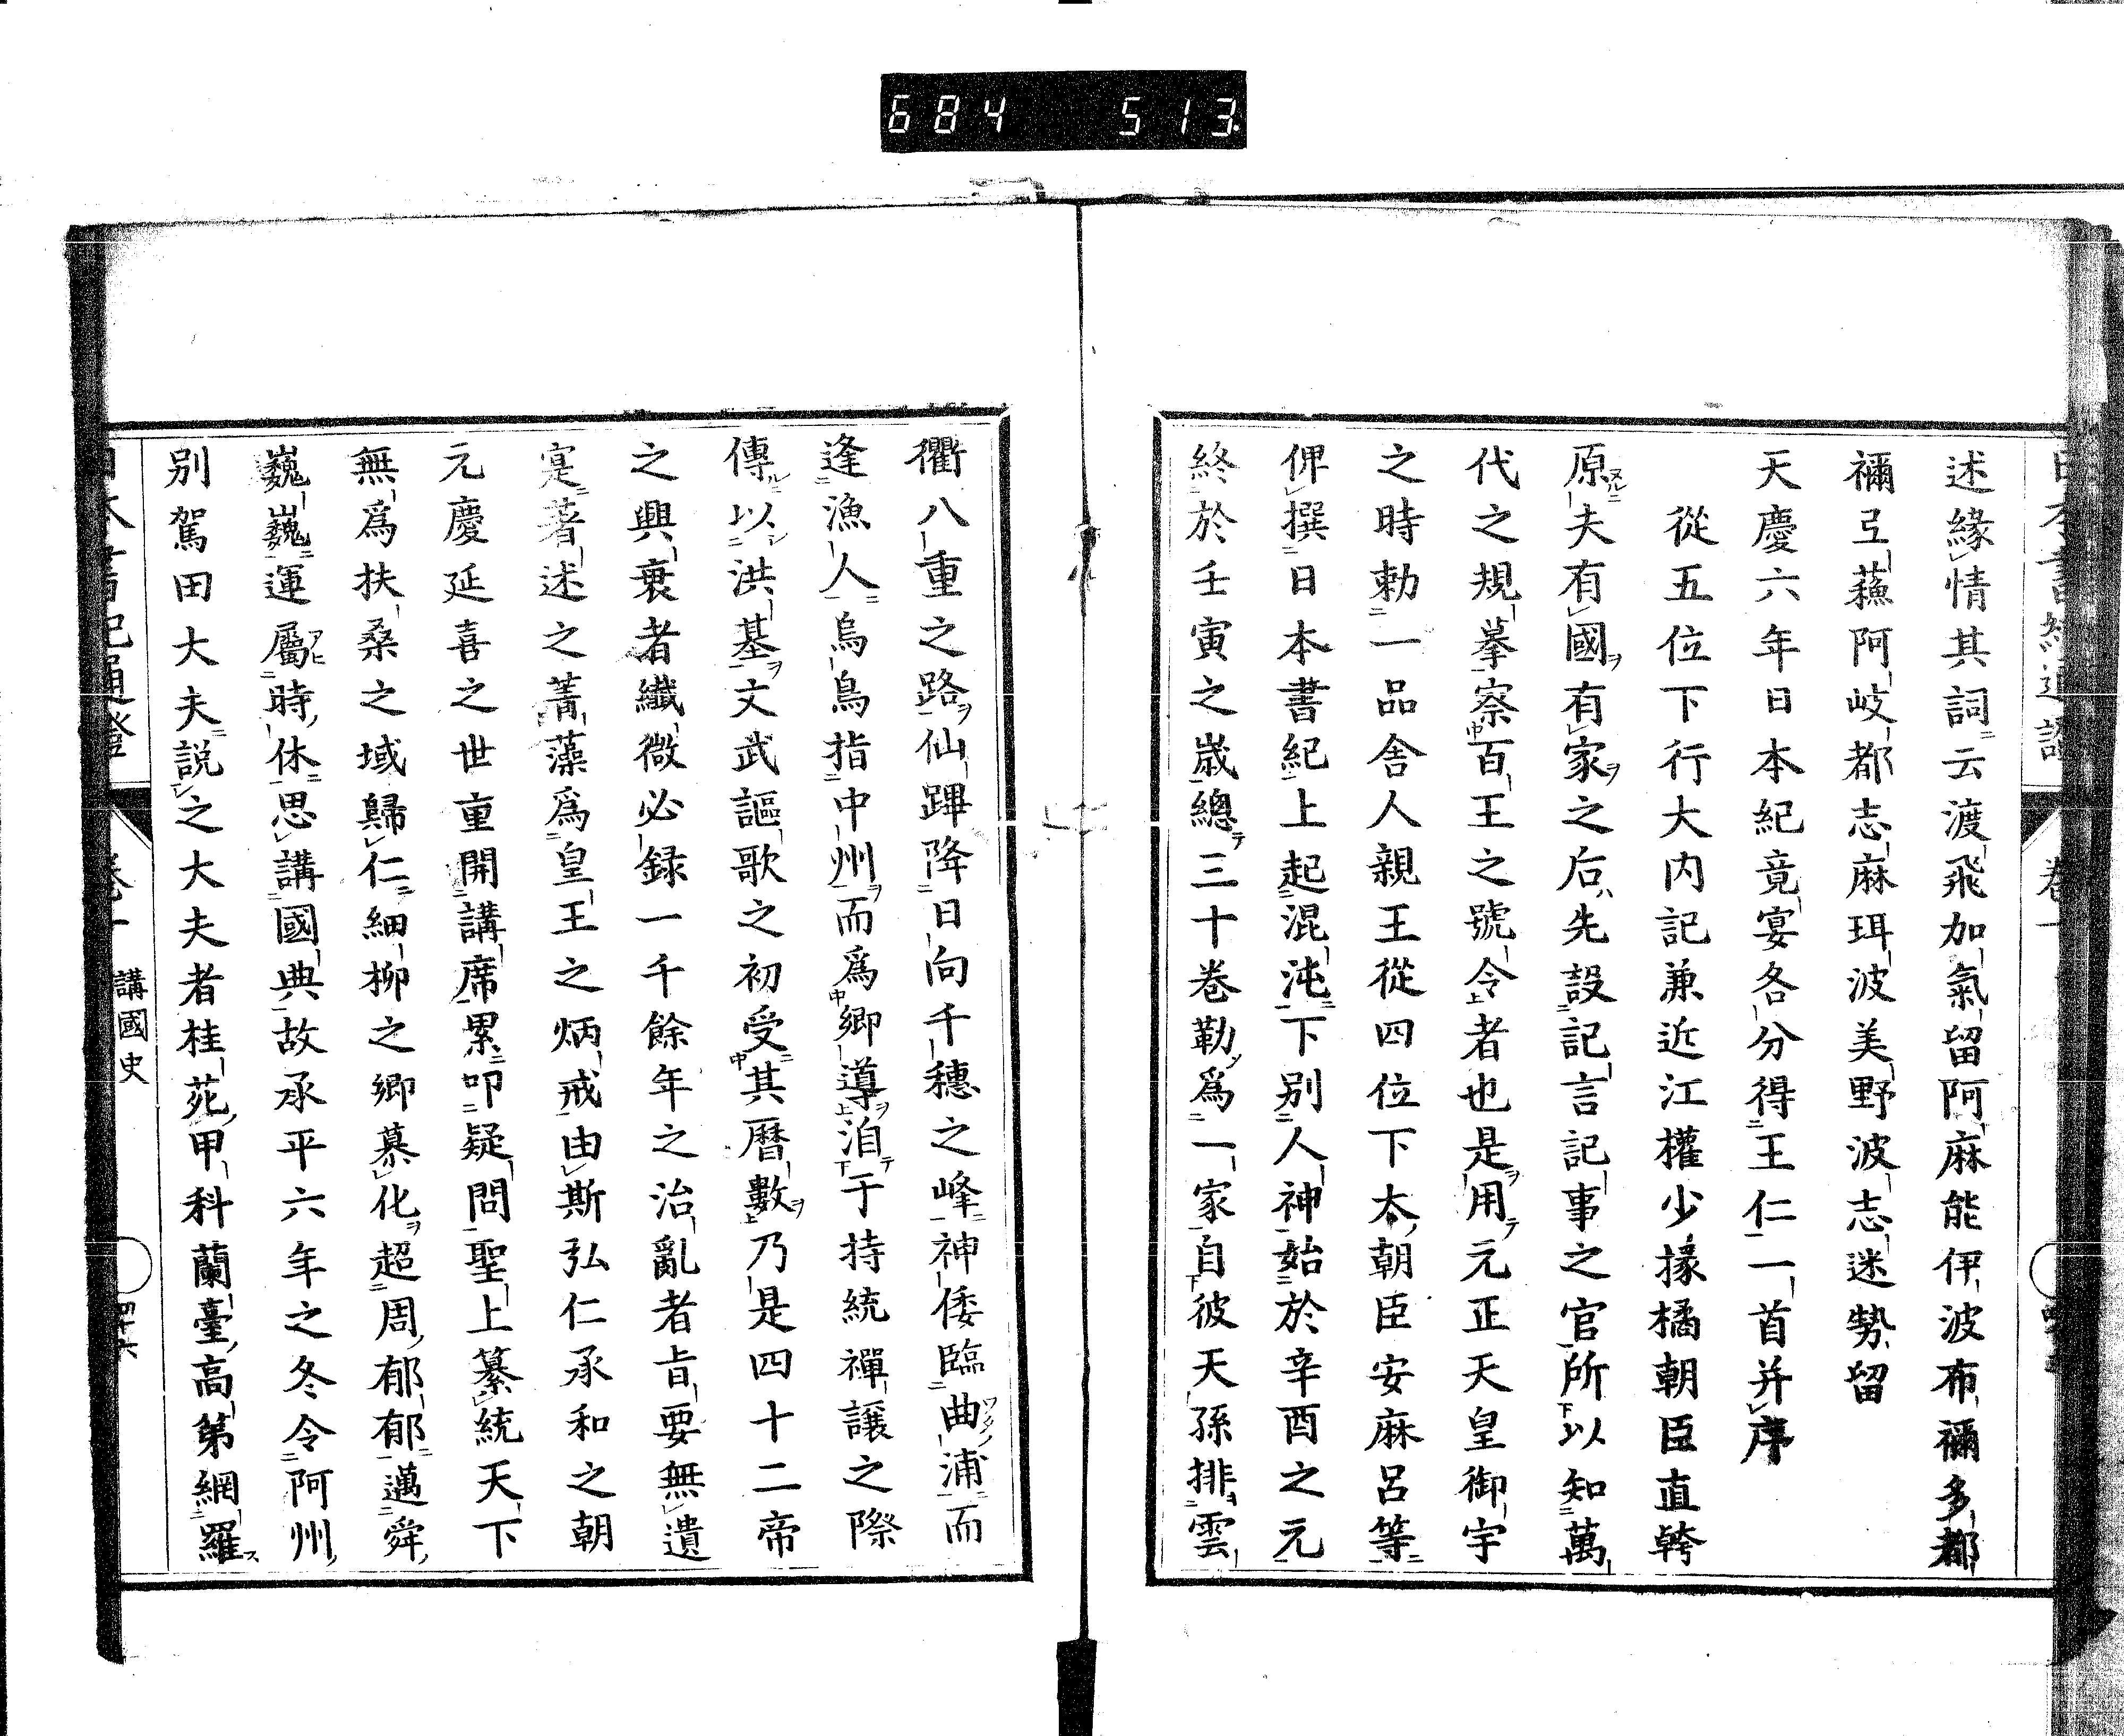 684 513
述緣情其詞云渡飛加氣留阿麻能伊波布禰多都
禰弖蘓阿岐都志麻珥波美野波志迷勢留
天慶六年日本紀竟宴各分得王仁一首并序
從五位下行大内記兼近江權少掾橘朝臣直幹
原夫有國有家之后先設記言記事之官所以知萬
代之規摹察百王之號令者也是用元正天皇御宇
之時勅一品舍人親王從四位下太朝臣安麻呂等
俾撰日本書紀上起混沌下别人神始於辛酉之元
終於壬寅之歲總三十卷勒爲一家自彼天孫排雲
衢八重之路仙蹕降日向千穗之峰神倭臨曲浦而
逢漁人烏鳥指中州而爲鄉導洎于持統禪讓之際
傳以洪基文武謳歌之初受其曆數乃是四十二帝
之興衰者纖微必録一千餘年之治亂者旨要無遺
寔著述之菁藻爲皇王之炳戒由斯弘仁承和之朝
元慶延喜之世重開講席累叩疑問聖上纂統天下
無爲扶桑之域歸仁細柳之鄉慕化超周郁郁邁舜
巍巍運屬時休思講國典故承平六年之冬令阿州
别駕田大夫説之大夫者桂苑甲科蘭臺高第網羅
講國史
四十六